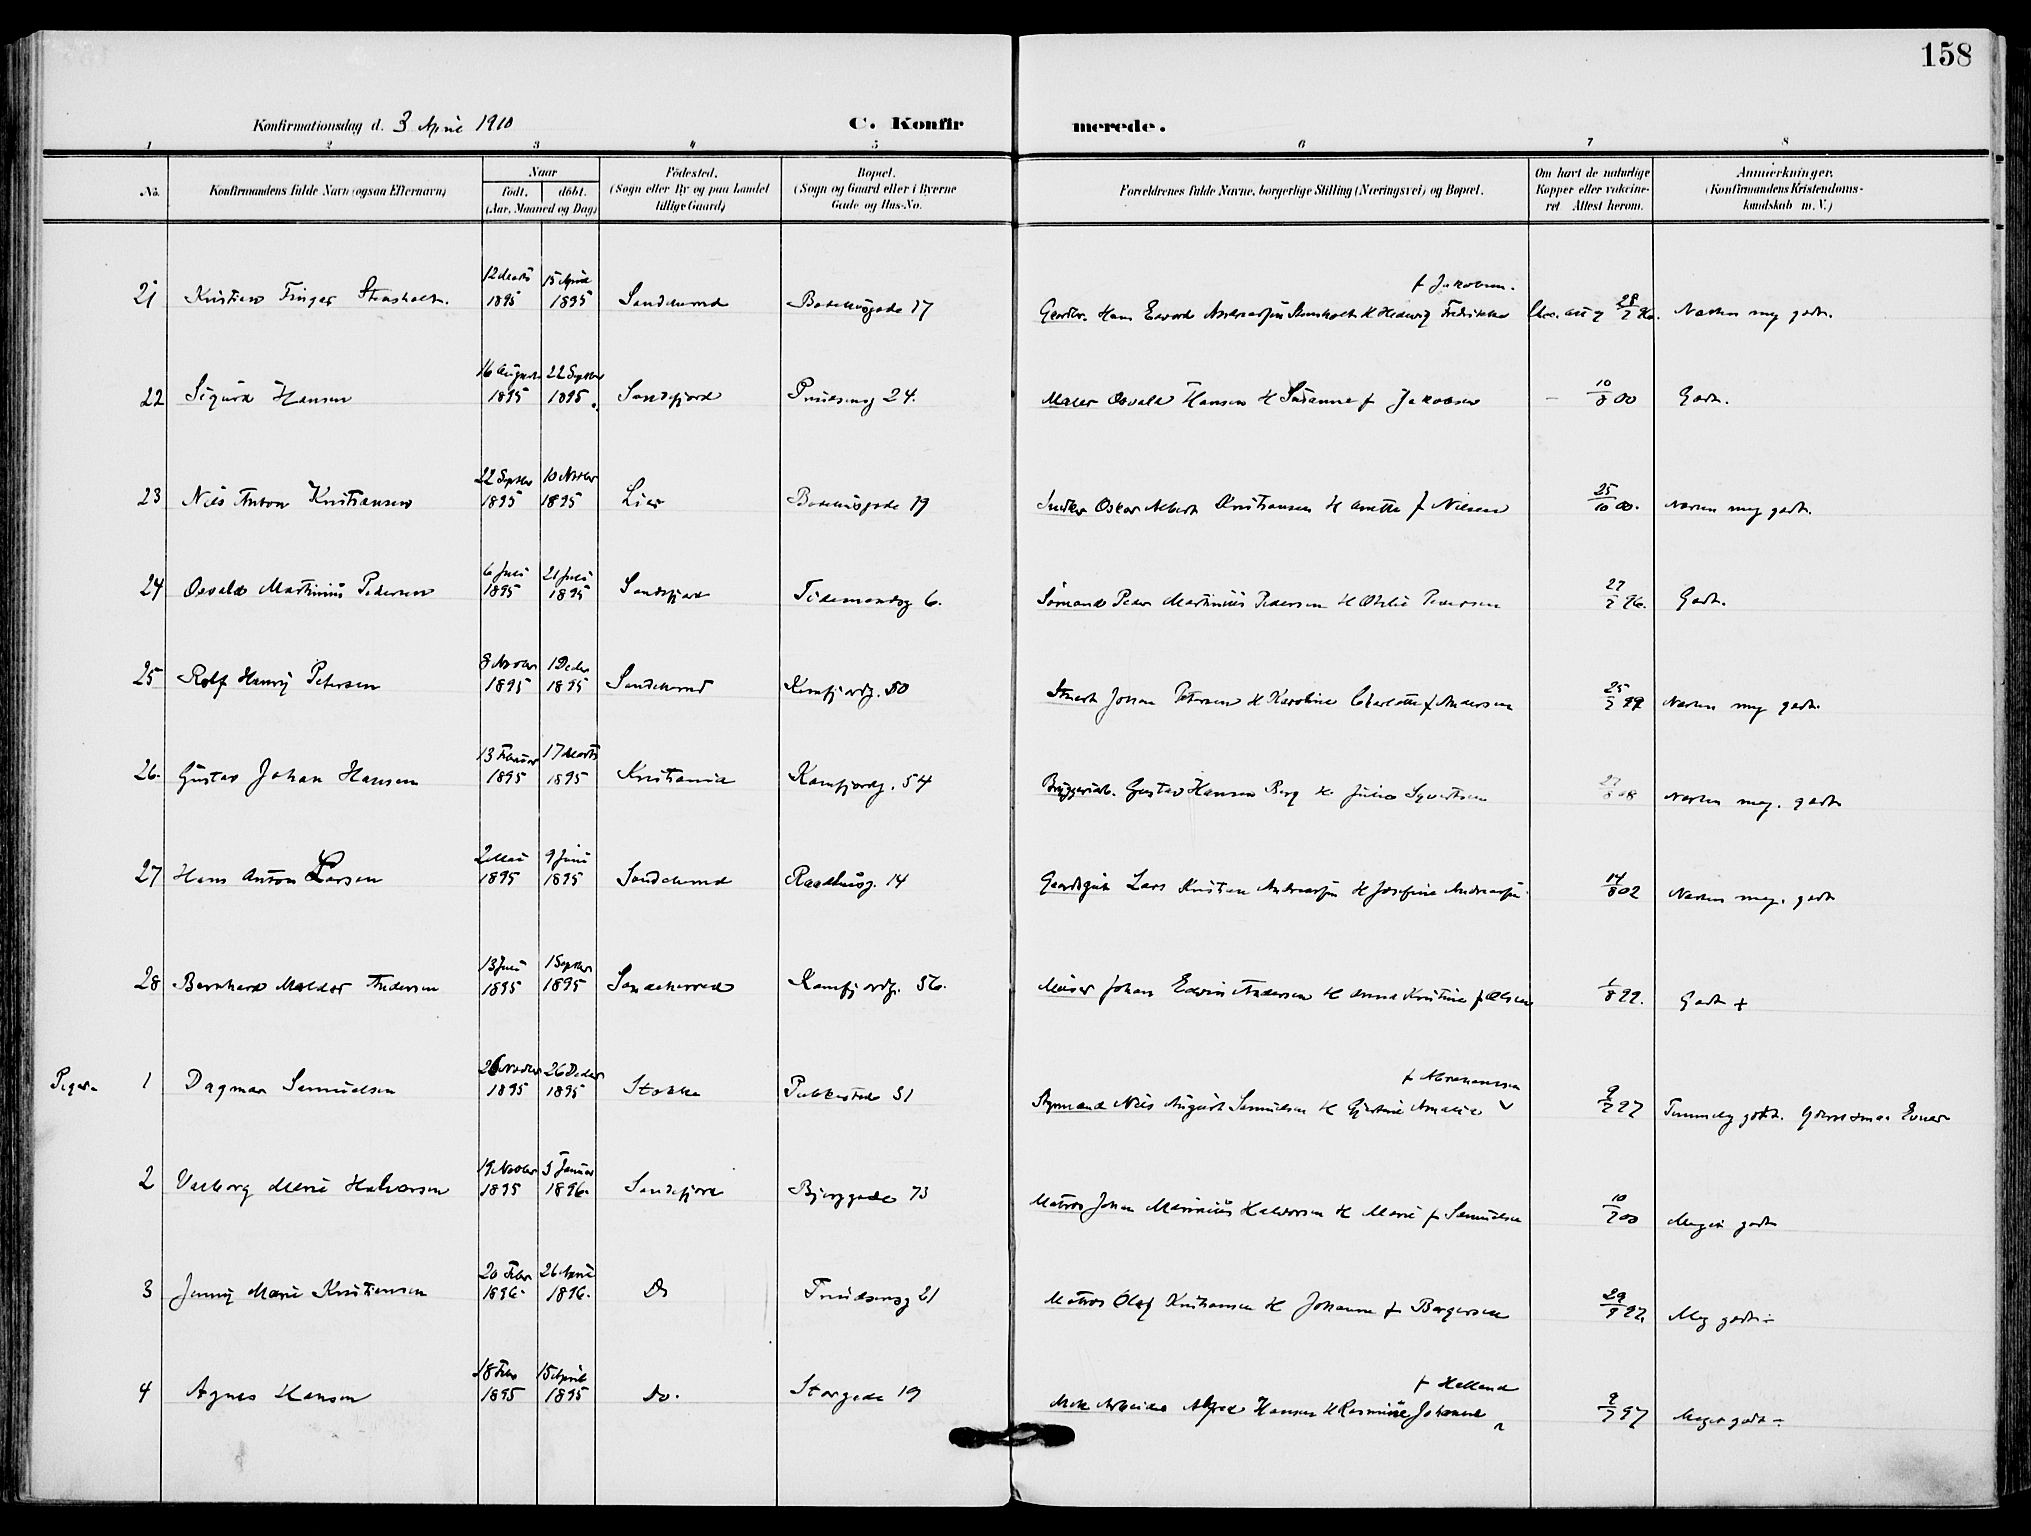 158
Konfirmationsdag d. 3 April 1910 C. Konfirmerede.
1 2 3 4 5 6 7 8
No. Konfirmandens fulde Navn (ogsaa Efternavn) Naar født. døbt. (Aar, Maaned og Dag) Fødested. (Sogn eller By og paa Landet tillige Gaard) Bopæl. (Sogn og Gaard eller i Byerne Gade og Hus-No. Forældrenes fulde Navne, borgerlige Stilling (Næringsvei) og Bopæl. Om havt de naturlige Kopper eller vaccineret Attest herom. Anmærkninger. (Konfirmandens Kristendomskundskab m. V.)
21 Kristian 12 Marts 1895 15 April 1895 Sandeherred 17 Hans Edvard Hedvig Fredrikke f Jakobsen. 28/7 96. Næsten meg godt.
22 Sigurd Hansen 16 August 1895 22 Septbr 1895. Sandefjord 24. Maler Osvald Hansen H Susanne f Jakobsen – 10/8 00 Godt.
23 Nils Anton Kristiansen 22 Septbr 1895 10 Novbr 1895 Lier 19 Oskar Albert Kristiansen H Anette f Nielsen 25/10 00. Næsten meg godt.
24 Osvald Martinius Pedersen 6 Juli 1895 21 Juli 1895 Sandefjord Tidemandsg 6. Sømand Peder Martinius Pedersen H Othilie Pedersen 27/7 96. Godt.
25 Rolf Henry Petersen 8 Novbr 1895 1 Decbr 1895 Sandeherred Kamfjordg. 50 Johan Petersen H Karoline Charlotte f Andersen 25/7 99 Næsten meg godt.
26. Gustav Johan Hansen 13 Februar 1895 17 Marts 1895 Kristiania Kamfjordg. 54 Bryggeriarb. Gustav Hansen Berg H Julie Syvertsen Næsten meg. godt
27 Hans Anton Larsen 2 Mai 1895 9 Juni 1895 Sandeherred Raadhusg. 14 Lars Kristian Andreassen H Josefine Andreassen 14/8 02 Næsten meg. godt
28 Bernhard Meldor Andersen 13 Juli 1895 1 Septbr 1895 Sandeherred Kamfjordg. 56. Murer Johan Edvin Andersen H Anna Kristine f Olsen 1/8 99. Godt +
Piger. 1 Dagmar Samuelsen 26 Novbr 1895 26 Decbr 1895 Stokke Pukkestad 51 Nils August Samuelsen H Amalie f Abrahamsen 9/7 97 Temmelig godt. Evner
2 Valborg Marie Halvorsen 19 Novbr 1895 5 Januar 1896. Sandefjord Bjerggade 73 Matros Johan Marinius Halvorsen H Marie f Samuelsen 10/7 00 Meget godt
3 Jenny Marie Kristiansen 20 Febr 1896. 26 April 1896. Do 21 Matros Olaf Kristiansen H Johanne f Borgersen 29/9 97. Meg godt ÷
4 Agnes Hansen 18 Febr 1895 15 April 1895 Do. Storgade 19 Mek Arbeider Alfred Hansen H Rasmine Johanne f Helland 9/7 97 Meget godt ÷